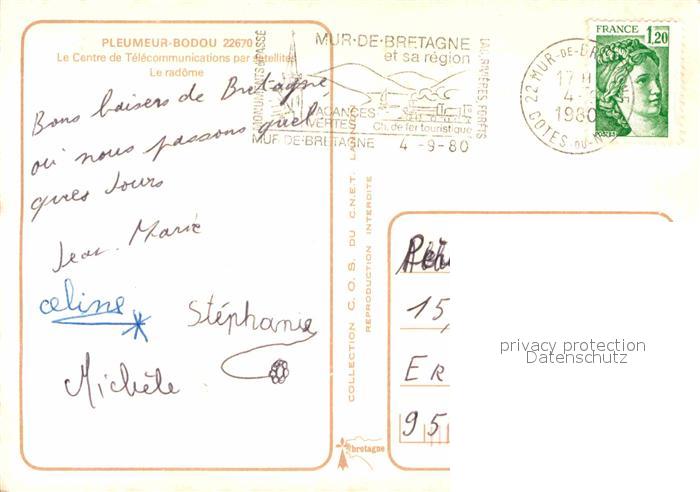 PLEUMEUR-BODOU 22670
Le Centre de Télécommunications par satellites
Le radôme
Bons baisers de Bretagne,
où nous passons quel
ques jours
Jean-Marie
Céline
Stéphanie
Michèle
MONUMENTS DU PASSÉ
MUR-DE-BRETAGNE
et sa région
VACANCES
VERTES
Ch. de fer touristique
LAC, RIVIÈRES, FORÊTS
MUR-DE-BRETAGNE 4-9-80
22 MUR-DE-BRETAGNE
17 H
4-9
1980
COTES-DU-N
FRANCE
1,20
COLLECTION C.O.S. DU C.N.E.T. LANNION
REPRODUCTION INTERDITE
bretagne
15,
ER
95
privacy protection
Datenschutz